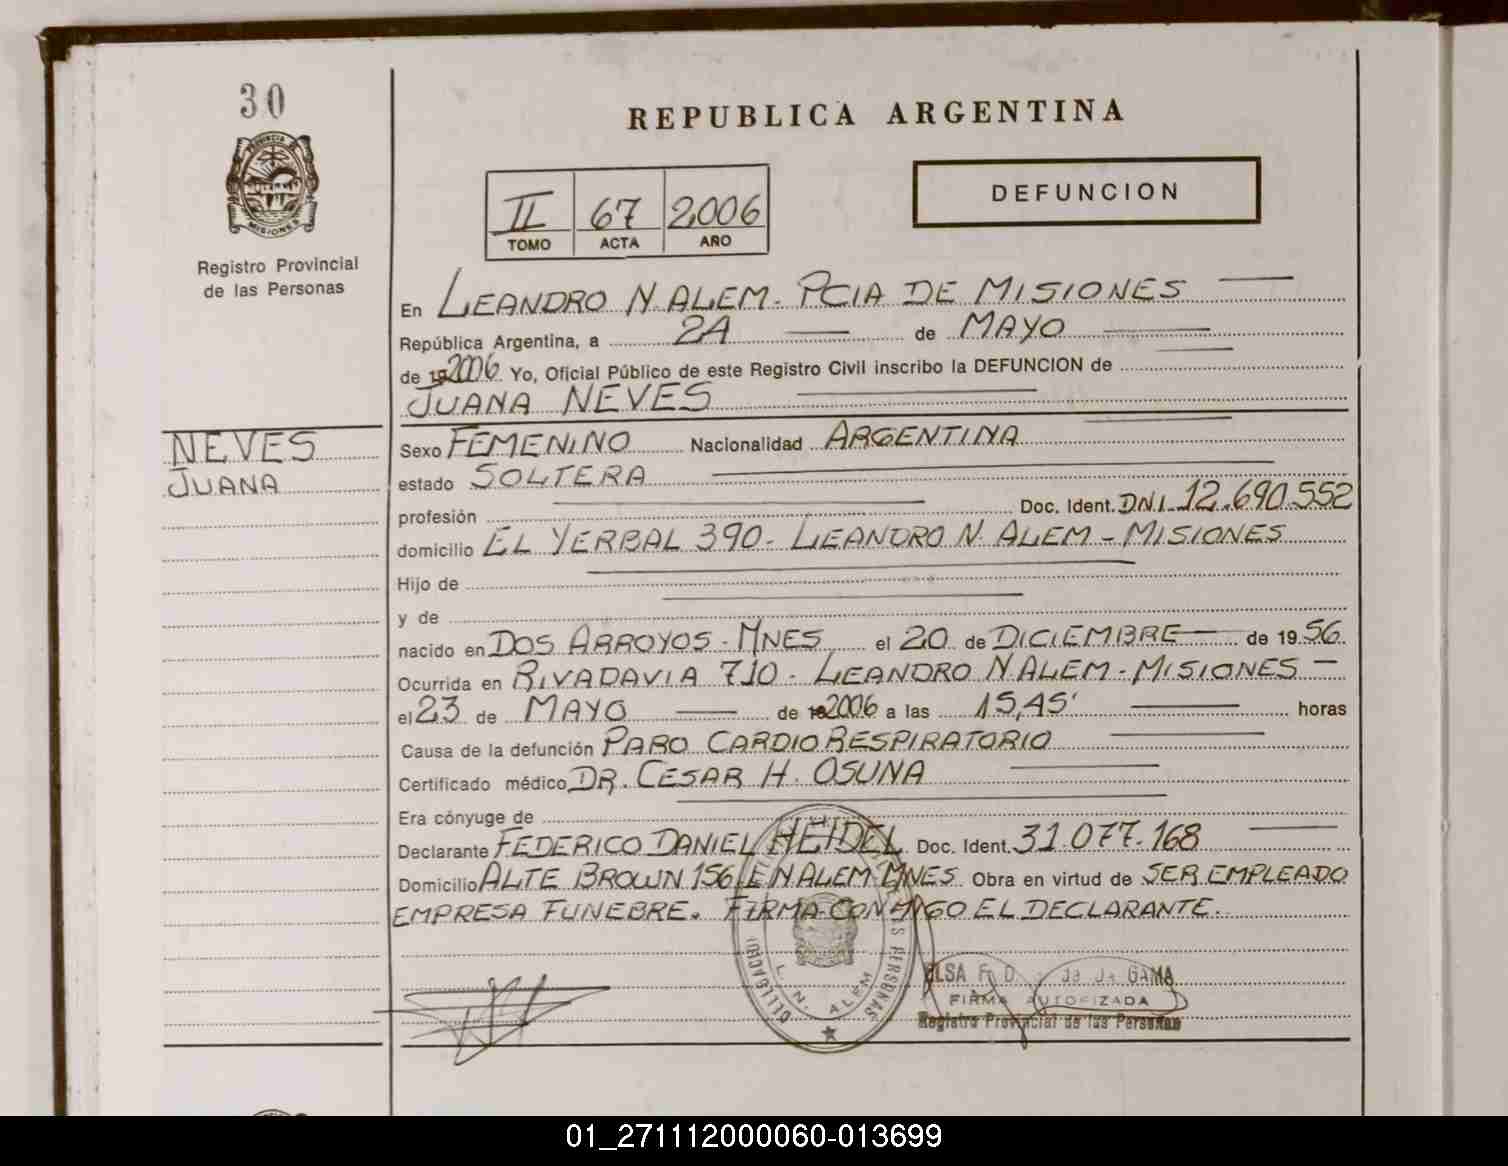 30
PROVINCIA DE
MISIONES
Registro Provincial
de las Personas
NEVES
JUANA
REPUBLICA ARGENTINA
II 67 2006
TOMO ACTA AÑO
DEFUNCION
En LEANDRO N. ALEM - PCIA DE MISIONES
República Argentina, a 24 de MAYO
de 19 2006 Yo, Oficial Público de este Registro Civil inscribo la DEFUNCION de
JUANA NEVES
Sexo FEMENINO Nacionalidad ARGENTINA
estado SOLTERA
profesión Doc. Ident. DNI 12.690.552
domicilio EL YERBAL 390 - LEANDRO N. ALEM - MISIONES
Hijo de
y de
nacido en DOS ARROYOS - MNES el 20 de DICIEMBRE de 1956
Ocurrida en RIVADAVIA 710 - LEANDRO N ALEM - MISIONES
el 23 de MAYO de 19 2006 a las 15,45' horas
Causa de la defunción PARO CARDIORESPIRATORIO
Certificado médico DR. CESAR H. OSUNA
Era cónyuge de
Declarante FEDERICO DANIEL HEIDEL Doc. Ident. 31.077.168
Domicilio ALTE BROWN 156 L N ALEM MNES Obra en virtud de SER EMPLEADO
EMPRESA FUNEBRE. FIRMA CONMIGO EL DECLARANTE.
L. N. ALEM
ELSA F. GAMA
FIRMA AUTORIZADA
Registro Provincial de las Personas
01_271112000060-013699